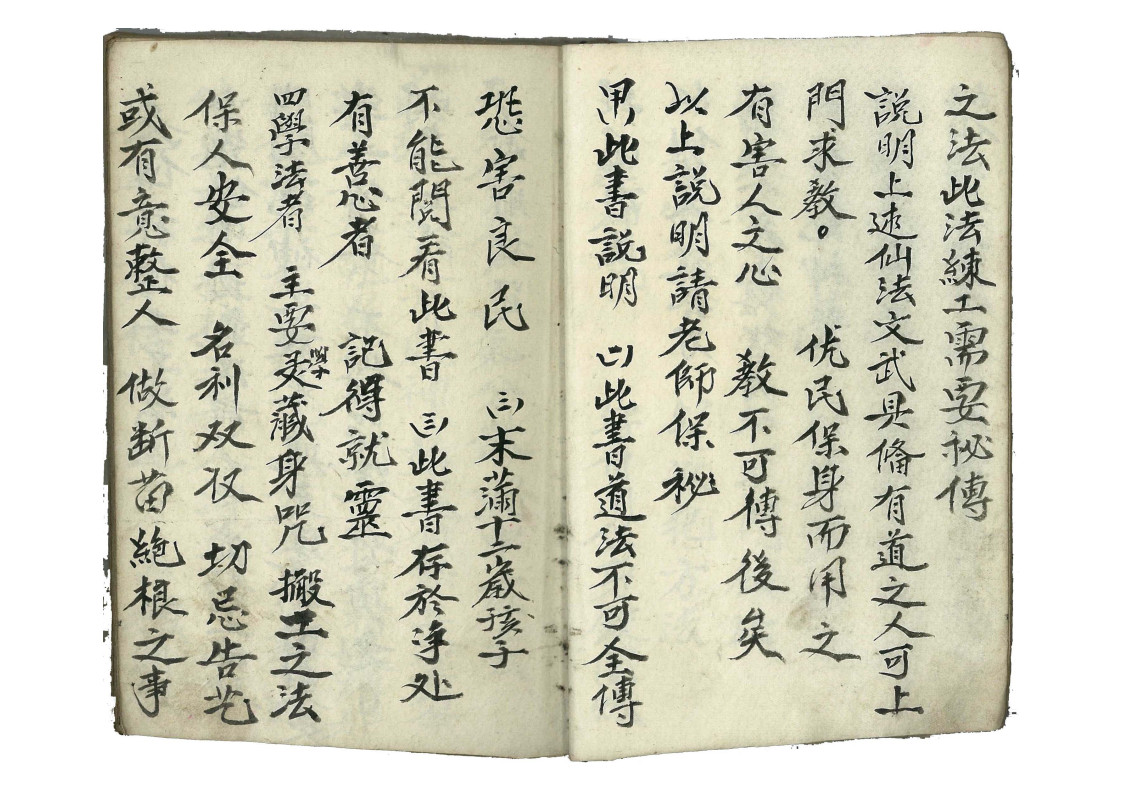 之法此法練工需要秘傳
説明上述仙法文武具偹有道之人可上
門求教。 优民保身而用之
有害人之心 教不可傳後矣
以上説明請老師保秘
用此書説明 (一)此書道法不可全傳
恐害良民 (二)未满十二歲孩子
不能閲看此書 (三)此書存於净处
有善心者 記得就靈
四學法者 主要學藏身咒 搬工之法
保人安全 名利双权 切忌告乞
或有意整人 做断苗絶根之事